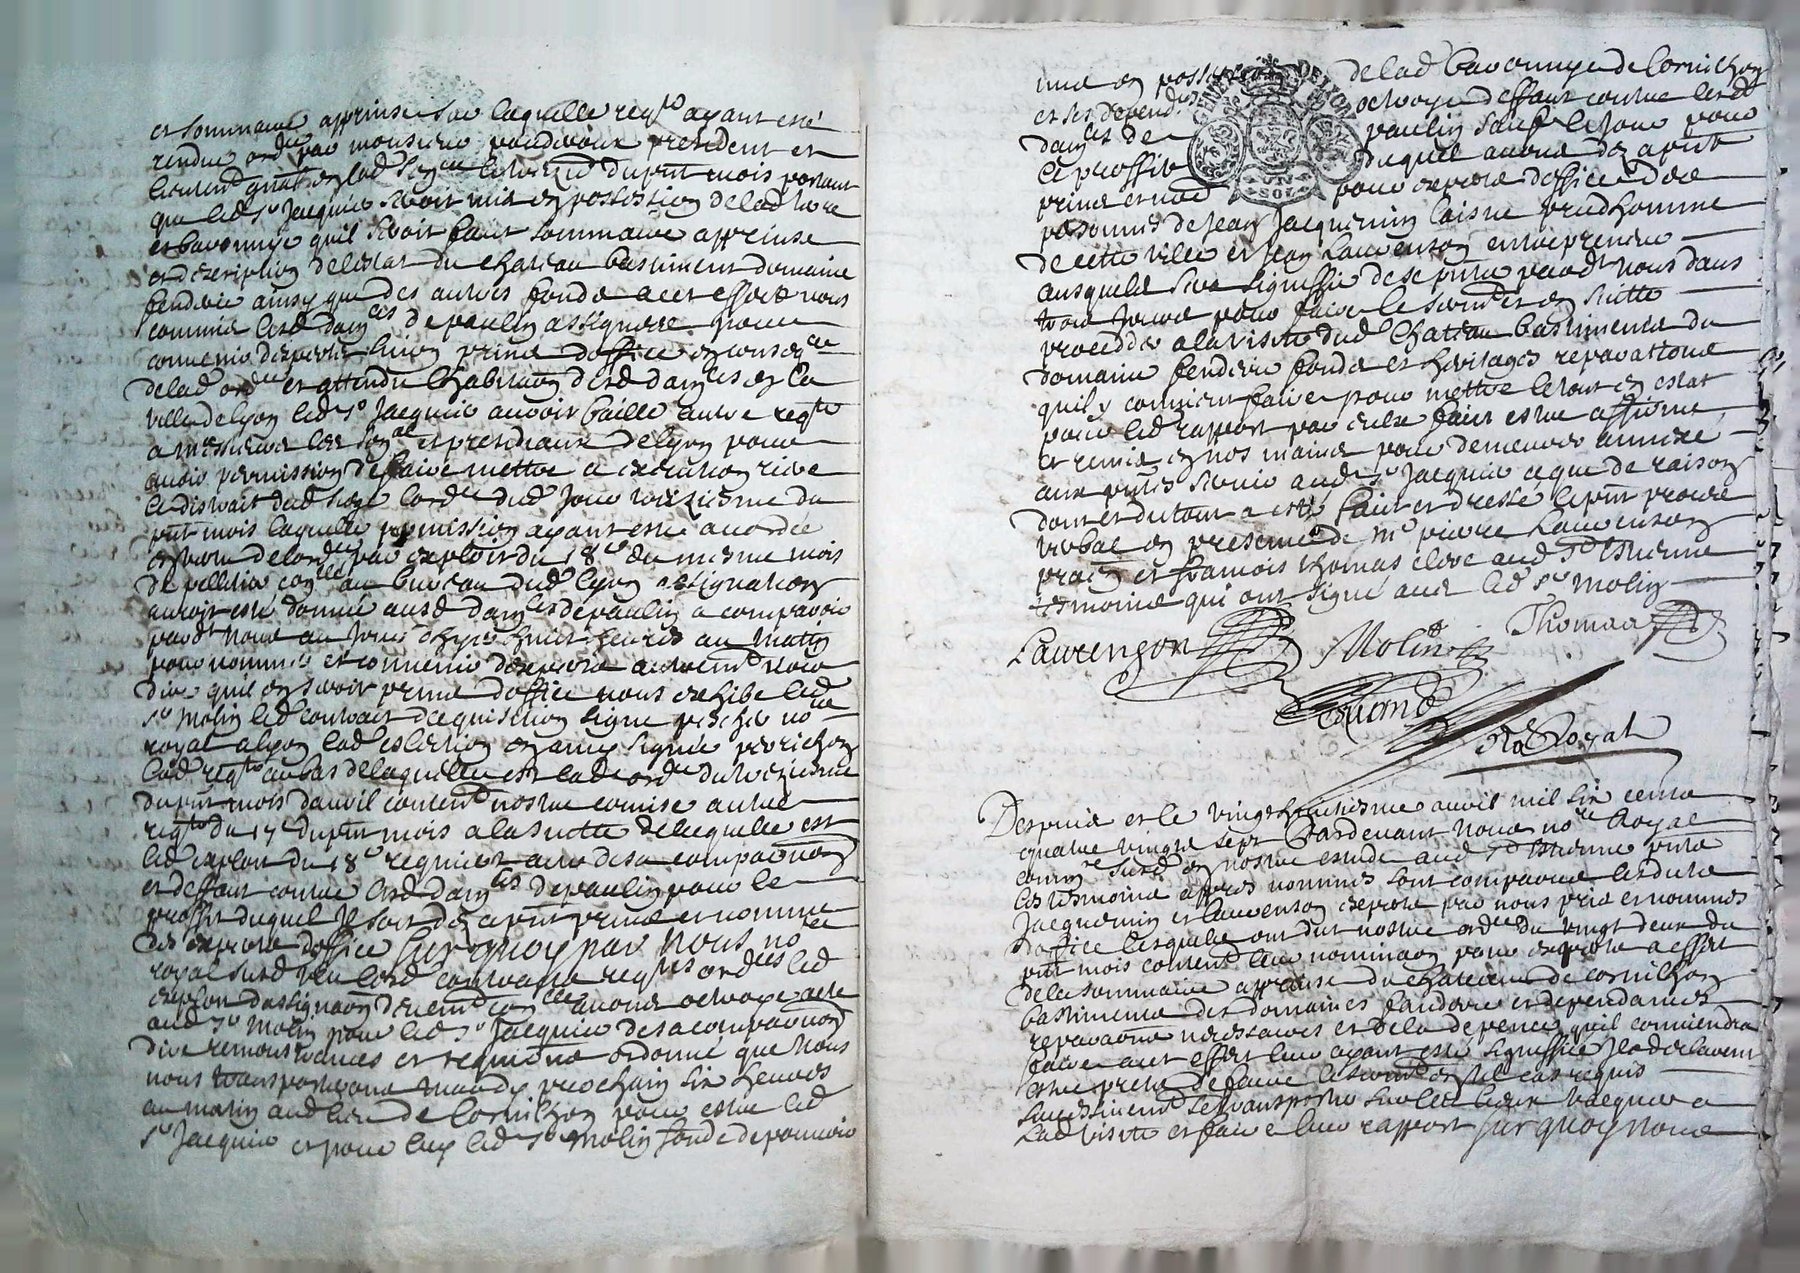 et sommaire apprinse sur laquelle reqte ayant esté
rendue ordce par monsieur president et
lieutent gnal en lad du pnt mois portant
que led sr Jacquier seroit mis en possession de lad terre
et baronnye quil seroit faict sommaire apprinse
et description de lestat du chateau bastiment domaine
fenderie ainsy que des autres fonds a cet effect nous
commis lesd damlles de paulin assignées pour
convenir dexperts sinon prins doffice en conseqce
de lad ordce et attendu lhabitaon desd damlles en la
ville de lyon led sr Jacquier auroit baillé autre reqte
a messieurs les senal et presidiaux de lyon pour
avoir permission de faire mettre a execution riere
le distroit dud siege lordce dud jour treiziesme du
pnt mois laquelle permission ayant esté accordée
en vertu de lordce par exploit du 18e du mesme mois
de pelletier conllé au bureau dud lyon assignation
auroit esté donnée ausd damlles de paulin a comparoir
pardt nous au jour dhuy huict heures du matin
pour nommer et convenir dexperts autremt voir
dire quil en seroit prins doffice nous exhibe led
sr Molin led contrait dacquisition signé nore
royal a lyon lad eslection en amy signée perrichon
lad reqte au bas de laquelle est lad ordce du treiziesme
du pnt mois davril content nostre comise autre
reqte du 17e du pnt mois a la suitte de laquelle est
led exploit du 18e requiert acte de sa comparaon
et deffaut contre lesd damlles de paulin pour le
proffit duquel il soit des a pnt prins et nommé
des experts doffice sur quoy par nous nore
royal susd veu lesd contraitz reqtes ordces led
exploit dassignaon deuemt conllé avons octroyé acte
aud sr Molin pour led sr Jacquier de sa comparaon
dire remonstrances et requisions ordonné que nous
nous transporterons mardy prochain six heures
au matin aud lieu de Cornilhon pour estre led
sr Jacquier et pour luy led sr Molin fondé de pouvoir
mis en possession de lad baronnye de Cornilhon
et ses dependces octroyé deffaut contre lesd
damlles de paulin sauf le jour pour
le proffit duquel avons des a pnt
prins et nommé pour experts doffice des
personnes de Jean Jacquemin laisné prudhomme
de cette ville et Jean Laurenson entrepreneur
ausquels sera signiffié de se pnter pardt nous dans
trois jours pour faire le sermt et en suitte
procedder a la visite dud Chateau bastiments du
domaine fenderie fonds et heritages reparations
quil y convient faire pour mettre le tout en estat
pour led rapport par eulx faict estre affirmé
et remis en nos mains pour demeurer annexé
aux pntes servir aud sr Jacquier ce que de raison
dont et du tout a esté faict et dressé le pnt procès
verbal en presence de Me pierre Laurenson
praen et francois thomas clerc aud St Estienne
tesmoins qui ont signé avec led sr Molin
Laurenson Molin Thomas
nore Royal
Despuis et le vingthuictiesme avril mil six cents
quatre vingts sept pardevant nous nore Royal
commre susd en nostre estude aud St Estienne pnts
les tesmoins appres nommés sont comparus lesdits
Jacquemin et Laurenson experts par nous pris et nommés
doffice lesquels ont dit nostre ordce du vingt deux du
pnt mois content leur nominaon pour experts a effect
de la sommaire apprise du chateau de Cornilhon
bastiments des domaines fanderie et dependances
reparaons necessaires et de la depence quil conviendra
faire a cet effect leur ayant esté signiffiée Ils declarent
estre prests de faire le sermt en tel cas requis
successivemt se transporter sur les lieux vacquer a
Lad visite et faire leur rapport sur quoy nous
GENER DE LYON